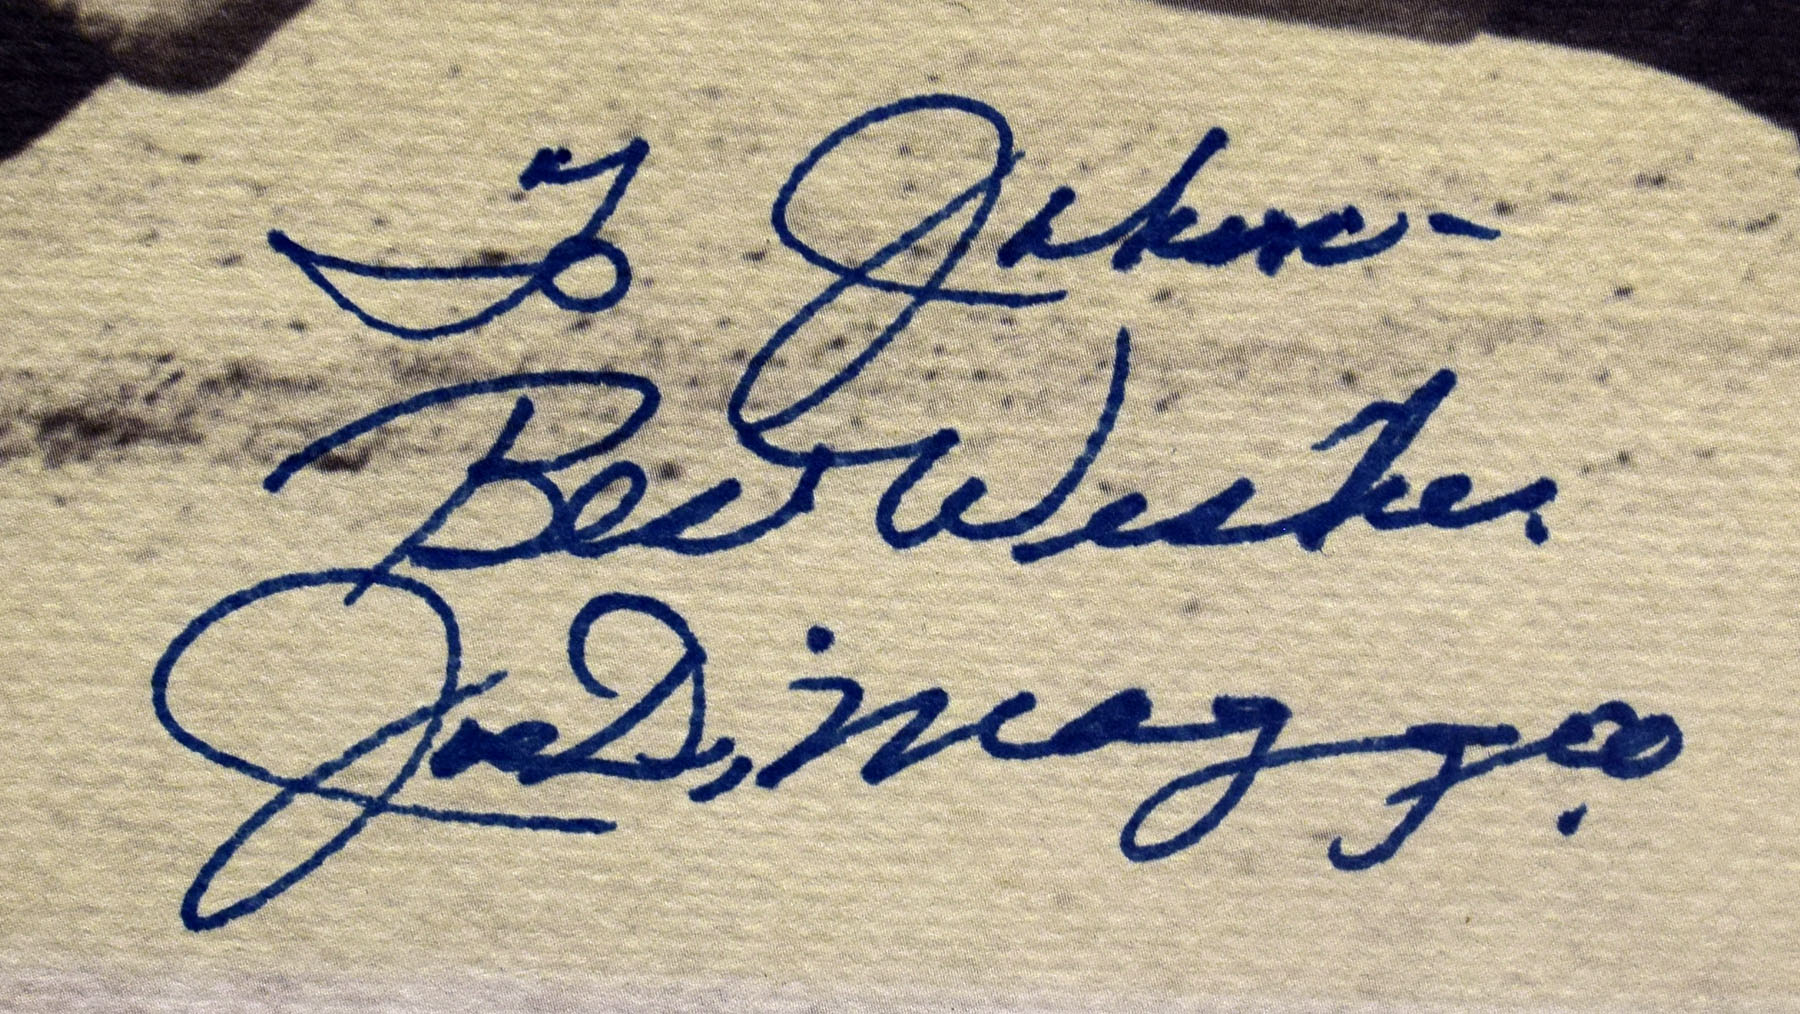 To
Best Wishes
Joe DiMaggio